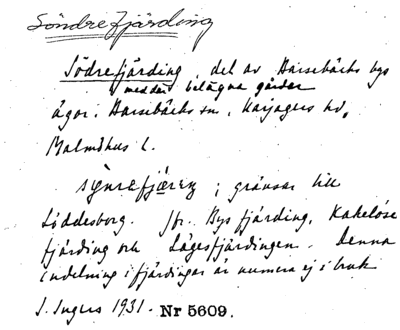 Söndre fjärding
Södrefjärding, del av Barsebäcks bys
med där belägna gårdar
ägor i Barsebäcks sn, Harjagers hd,
Malmöhus l.
synrefjæreŋ; gränsar till
Löddesborg. Jfr. Bysfjärding, Kakelöse
fjärding och Lägesfjärdingen. Denna
indelning i fjärdingar är numera ej i bruk
I. Ingers 1931. Nr 5609.